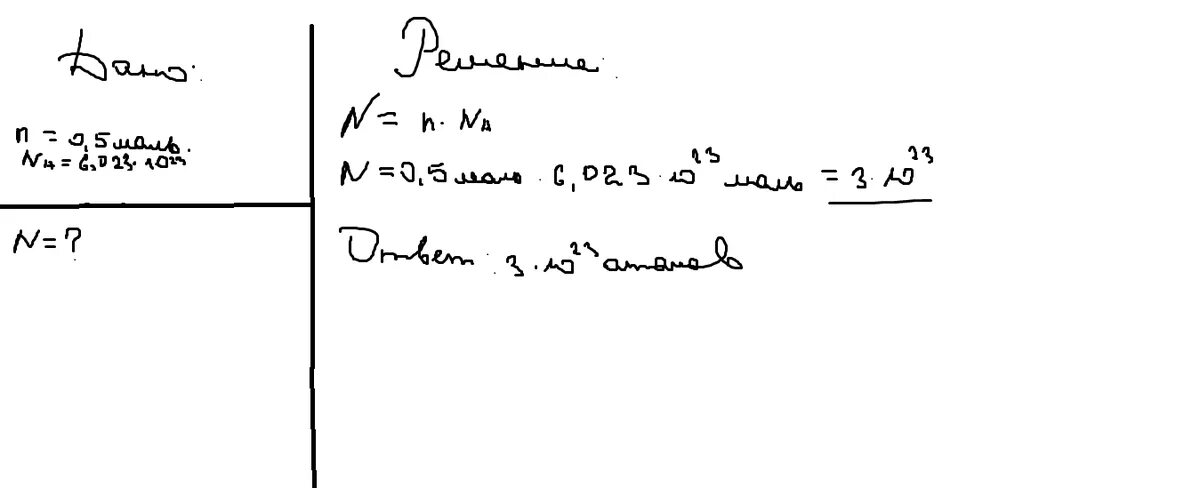 Дано:
n = 0,5 моль.
NA = 6,023 · 10²³
N = ?
Решение:
N = n · NA
N = 0,5 моль · 6,023 · 10²³ моль = 3 · 10²³
Ответ: 3 · 10²³ атомов